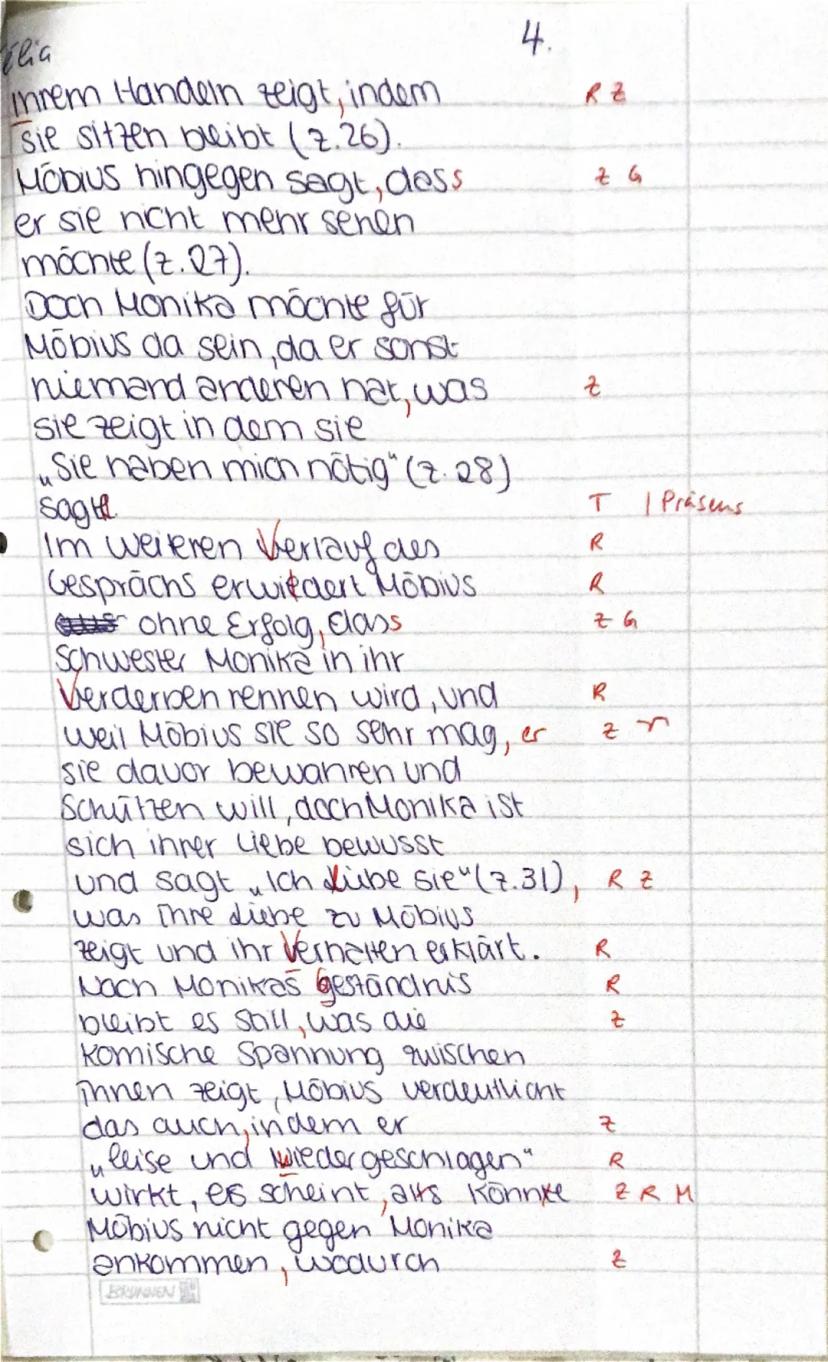 4.
ihrem Handeln zeigt, indem R Z
sie sitzen bleibt (Z.26).
Möbius hingegen sagt, dass Z G
er sie nicht mehr sehen
möchte (Z.27).
Doch Monika möchte für
Möbius da sein, da er sonst
niemand anderen hat, was Z
sie zeigt in dem sie
„Sie haben mich nötig“ (Z.28)
sagt. T | Präsens
Im weiteren Verlauf des R
Gesprächs erwidert Möbius R
ohne Erfolg, dass Z G
Schwester Monika in ihr
Verderben rennen wird, und R
weil Möbius sie so sehr mag, er Z
sie davor bewahren und
schützen will, doch Monika ist
sich ihrer Liebe bewusst
und sagt „Ich liebe sie“ (Z.31), R Z
was ihre Liebe zu Möbius
zeigt und ihr Verhalten erklärt. R
Nach Monikas Geständnis R
bleibt es still, was die Z
komische Spannung zwischen
ihnen zeigt, Möbius verdeutlicht
das auch, indem er Z
„leise und niedergeschlagen“ R
wirkt, es scheint, als könnte Z R M
Möbius nicht gegen Monika
ankommen, wodurch Z
BRUNNEN